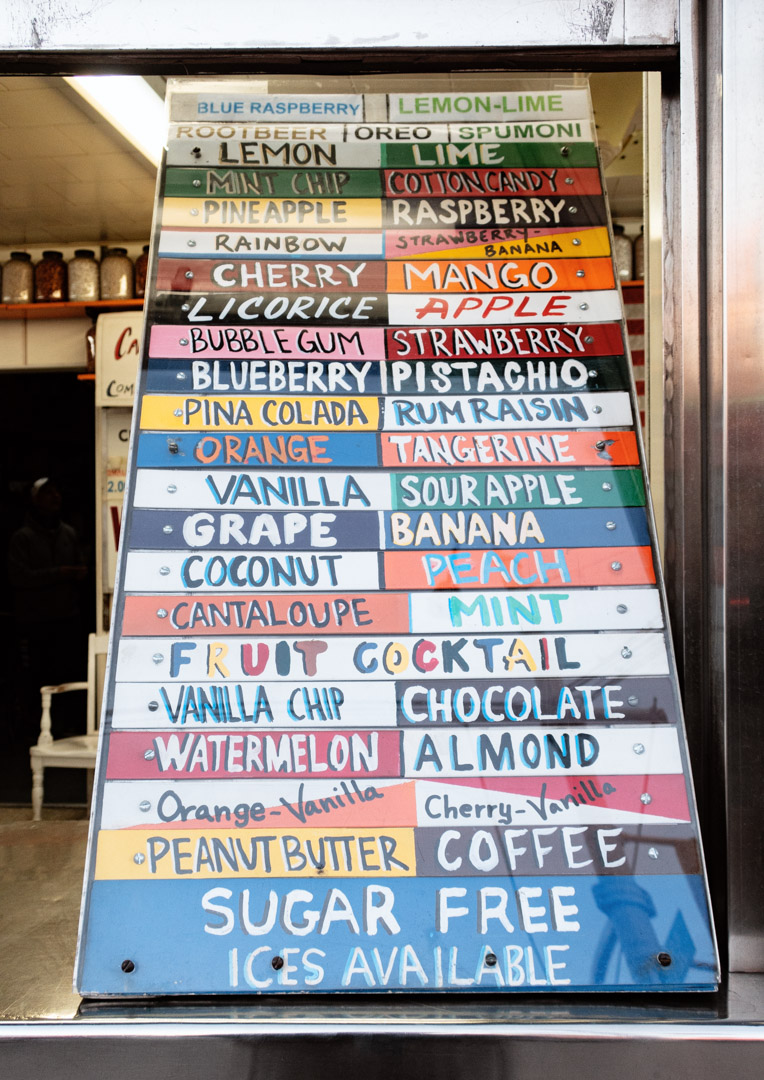 BLUE RASPBERRY LEMON-LIME
ROOTBEER OREO SPUMONI
LEMON LIME
MINT CHIP COTTON CANDY
PINEAPPLE RASPBERRY
RAINBOW STRAWBERRY-BANANA
CHERRY MANGO
LICORICE APPLE
BUBBLE GUM STRAWBERRY
BLUEBERRY PISTACHIO
PINA COLADA RUM RAISIN
ORANGE TANGERINE
VANILLA SOUR APPLE
GRAPE BANANA
COCONUT PEACH
CANTALOUPE MINT
FRUIT COCKTAIL
VANILLA CHIP CHOCOLATE
WATERMELON ALMOND
Orange-Vanilla Cherry-Vanilla
PEANUT BUTTER COFFEE
SUGAR FREE
ICES AVAILABLE